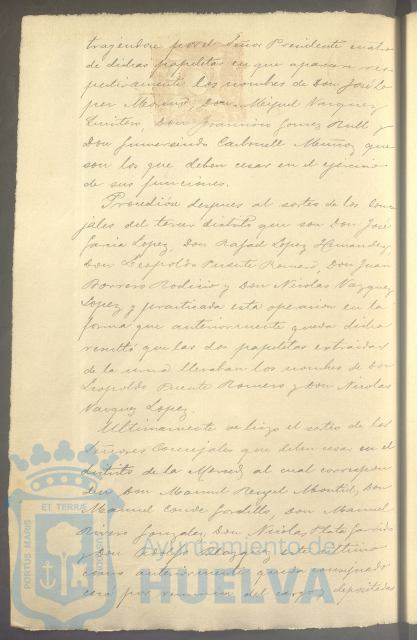 trayéndose por el Señor Presidente cuatro
de dichas papeletas en que aparecen res
pectivamente los nombres de Don José Lo
pez Moreno, Don Miguel Vazquez
Don Francisco Gomez Rull y
Don Gumersindo Carbonell Muñoz que
son los que deben cesar en el ejercicio
de sus funciones.
Procedióse despues al sorteo de los Conce
jales del tercer distrito que son Don José
Garcia Lopez, Don Rafael Lopez Hernandez,
Don Leopoldo Puente Romero, Don Juan
Borrero Rodicio y Don Nicolas Vazquez
Lopez y practicada esta operacion en la
forma que anteriormente queda dicha
resultó que las dos papeletas extraidas
de la urna llevaban los nombres de Don
Leopoldo Puente Romero y Don Nicolas
Vazquez Lopez.
Ultimamente se hizo el sorteo de los
Señores Concejales que deben cesar en el
distrito de la Merced al cual correspon
den Don Manuel Rengel Montiel, Don
Manuel Conde Gordillo, Don Manuel
Rivero Gonzalez, Don Nicolas Plata Garrido
y Don
como anteriormente queda consignado
por renuncia del cargo, depositadas
PORTUS MARIS ET TERRAE
Ayuntamiento de
HUELVA